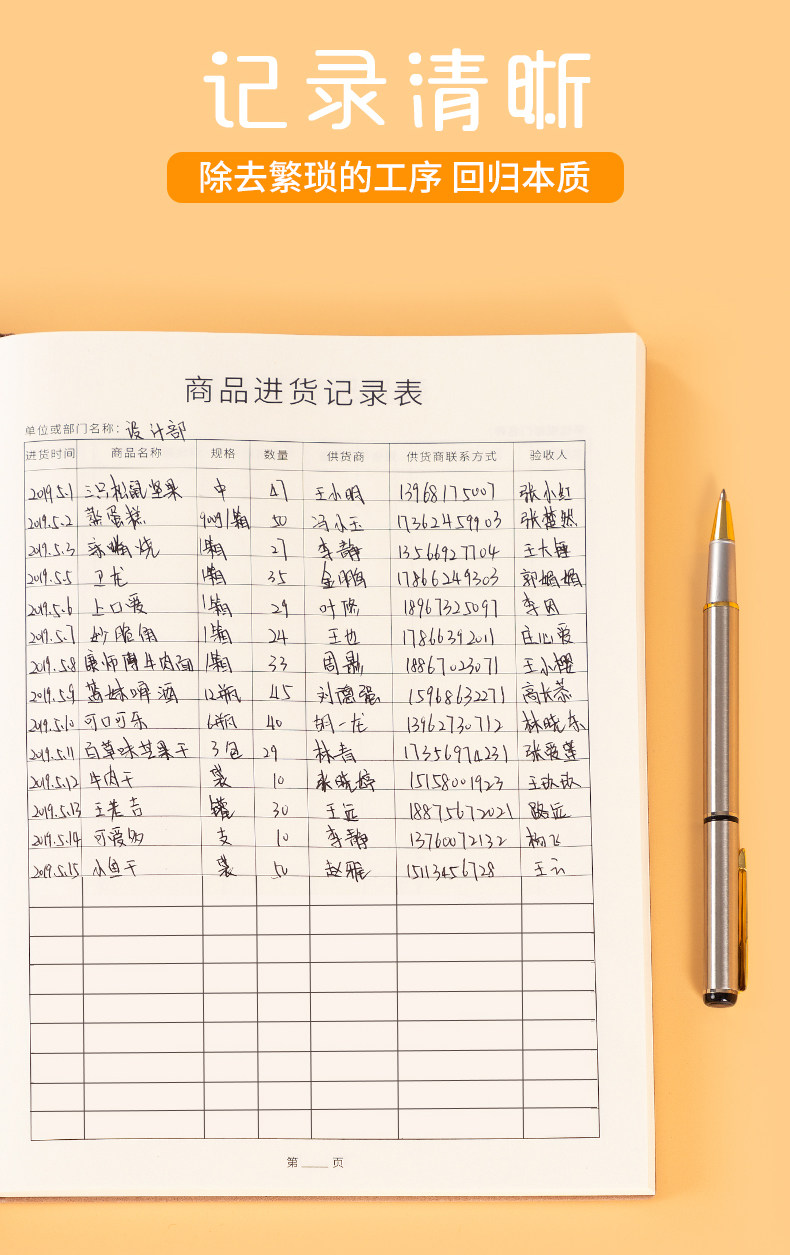 记录清晰
除去繁琐的工序 回归本质
商品进货记录表
单位或部门名称：设计部
进货时间 商品名称 规格 数量 供货商 供货商联系方式 验收人
2019.5.1 三只松鼠坚果 中 47 王小明 13968175007 张小红
2019.5.2 蒸蛋糕 900g/箱 50 冯小玉 17362459903 张楚然
2019.5.3 1箱 27 李静 13566927704
2019.5.5 卫龙 1箱 35 金鹏 17866249303 郭娟娟
2019.5.6 上口爱 1箱 29 18967325097
2019.5.7 妙脆角 1箱 24 王也 17866392011 庄心爱
2019.5.8 康师傅牛肉面 1箱 33 周鼎 18867023071 王小樱
2019.5.9 啤酒 12瓶 45 刘德强 15968632271
2019.5.10 可口可乐 6瓶 40 胡一龙 13962730712 林晓东
2019.5.11 百草味芒果干 3包 29 林青 17356974231
2019.5.12 牛肉干 袋 10 张晓婷 15158001923 王玖玖
2019.5.13 王老吉 罐 30 王远 18875672021 路远
2019.5.14 可爱多 支 10 李静 13760072132 杨飞
2019.5.15 小鱼干 袋 50 赵雅 15113456728 王云
第____页